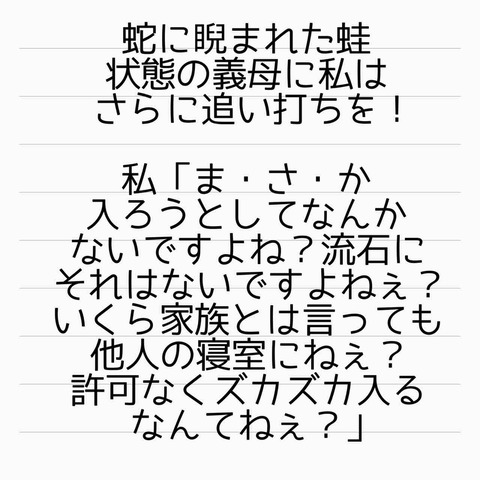 蛇に睨まれた蛙
状態の義母に私は
さらに追い打ちを！
私「ま・さ・か
入ろうとしてなんか
ないですよね？流石に
それはないですよねぇ？
いくら家族とは言っても
他人の寝室にねぇ？
許可なくズカズカ入る
なんてねぇ？」